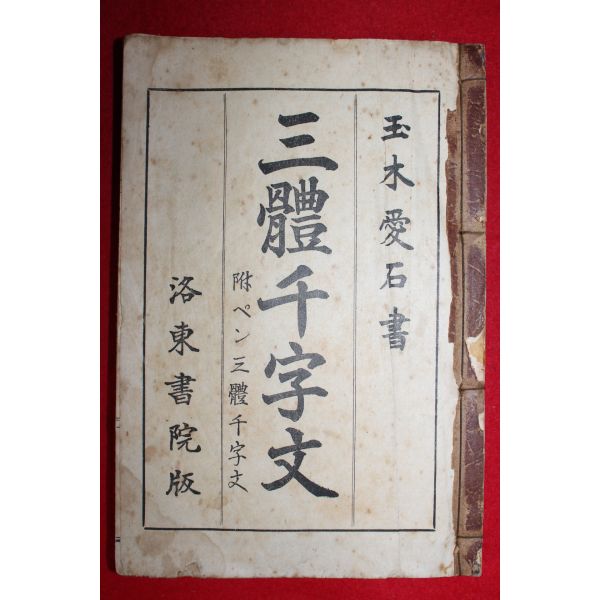 玉木愛石書
三體千字文
附ペン三體千字文
洛東書院版